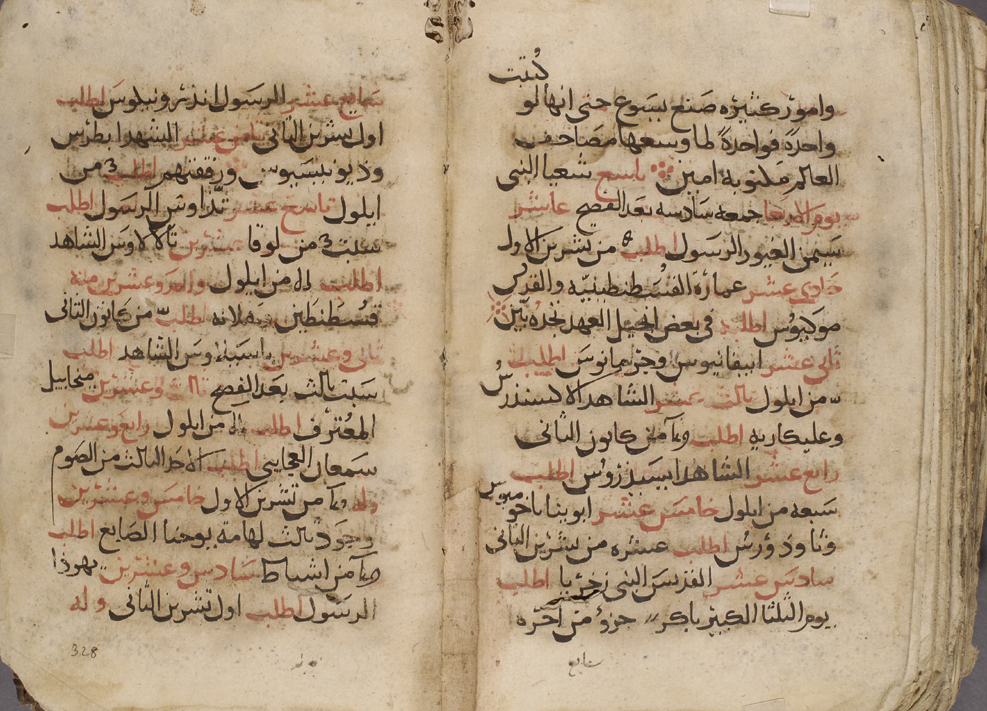 كُتبت
وامور كثيره صنع يسوع حتى انها لو
واحدة فواحدة لما وسعها مصاحف
العالم مكتوبه امين تاسع شعيا النبي
يوم الاربعا جمعه سادسه بعد الفصح عاشر
سيمن الغيور الرسول اطلب من تشرين الاول
حادي عشر عمارة القسطنطينيه والقدس
موكيوس اطلب في بعض انجيل العهد نجده
ثاني عشر ابيفانيوس وجرمانوس اطلب
من ايلول ثالث عشر الشاهد الاكسندرس
وغليكاريه اطلب من كانون الثاني
رابع عشر الشاهد ايسيدروس اطلب
سبعه من ايلول خامس عشر ابوينا باخوميوس
وثاودورس اطلب عشره من تشرين الثاني
سادس عشر القديس النبي زخريا اطلب
يوم الثلثا الكبير باكر جزؤ من اخره
سابع
سابع عشر الرسول اندرونيكوس اطلب
اول تشرين الثاني ثامن عشر الشهدا بطرس
وديونيسيوس ورفقتهم اطلب 3 من
ايلول تاسع عشر تداوس الرسول اطلب
سبت 3 من لوقا عشرين تالالاوس الشاهد
اطلب من ايلول واحد وعشرين منه
قسطنطين وهلانه اطلب من كانون الثاني
ثاني وعشرين الشاهد اطلب
سبت ثالث بعد الفصح ثالث وعشرين ميخاييل
المعترف اطلب من ايلول رابع وعشرين
سمعان العجايبي اطلب الاحد الثالث من الصوم
وله من تشرين الاول خامس وعشرين
وجود ثالث لهامة يوحنا الصابغ اطلب
من اشباط سادس وعشرين يهوذا
الرسول اطلب اول تشرين الثاني وله
328